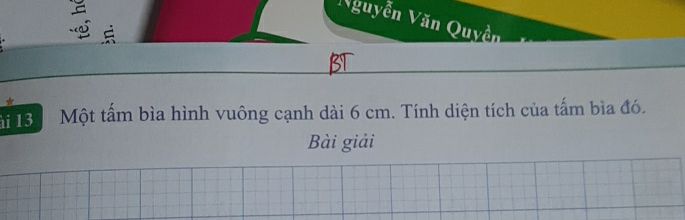 tế, h
ên.
Nguyễn Văn Quyền
BT
ài 13 Một tấm bìa hình vuông cạnh dài 6 cm. Tính diện tích của tấm bìa đó.
Bài giải